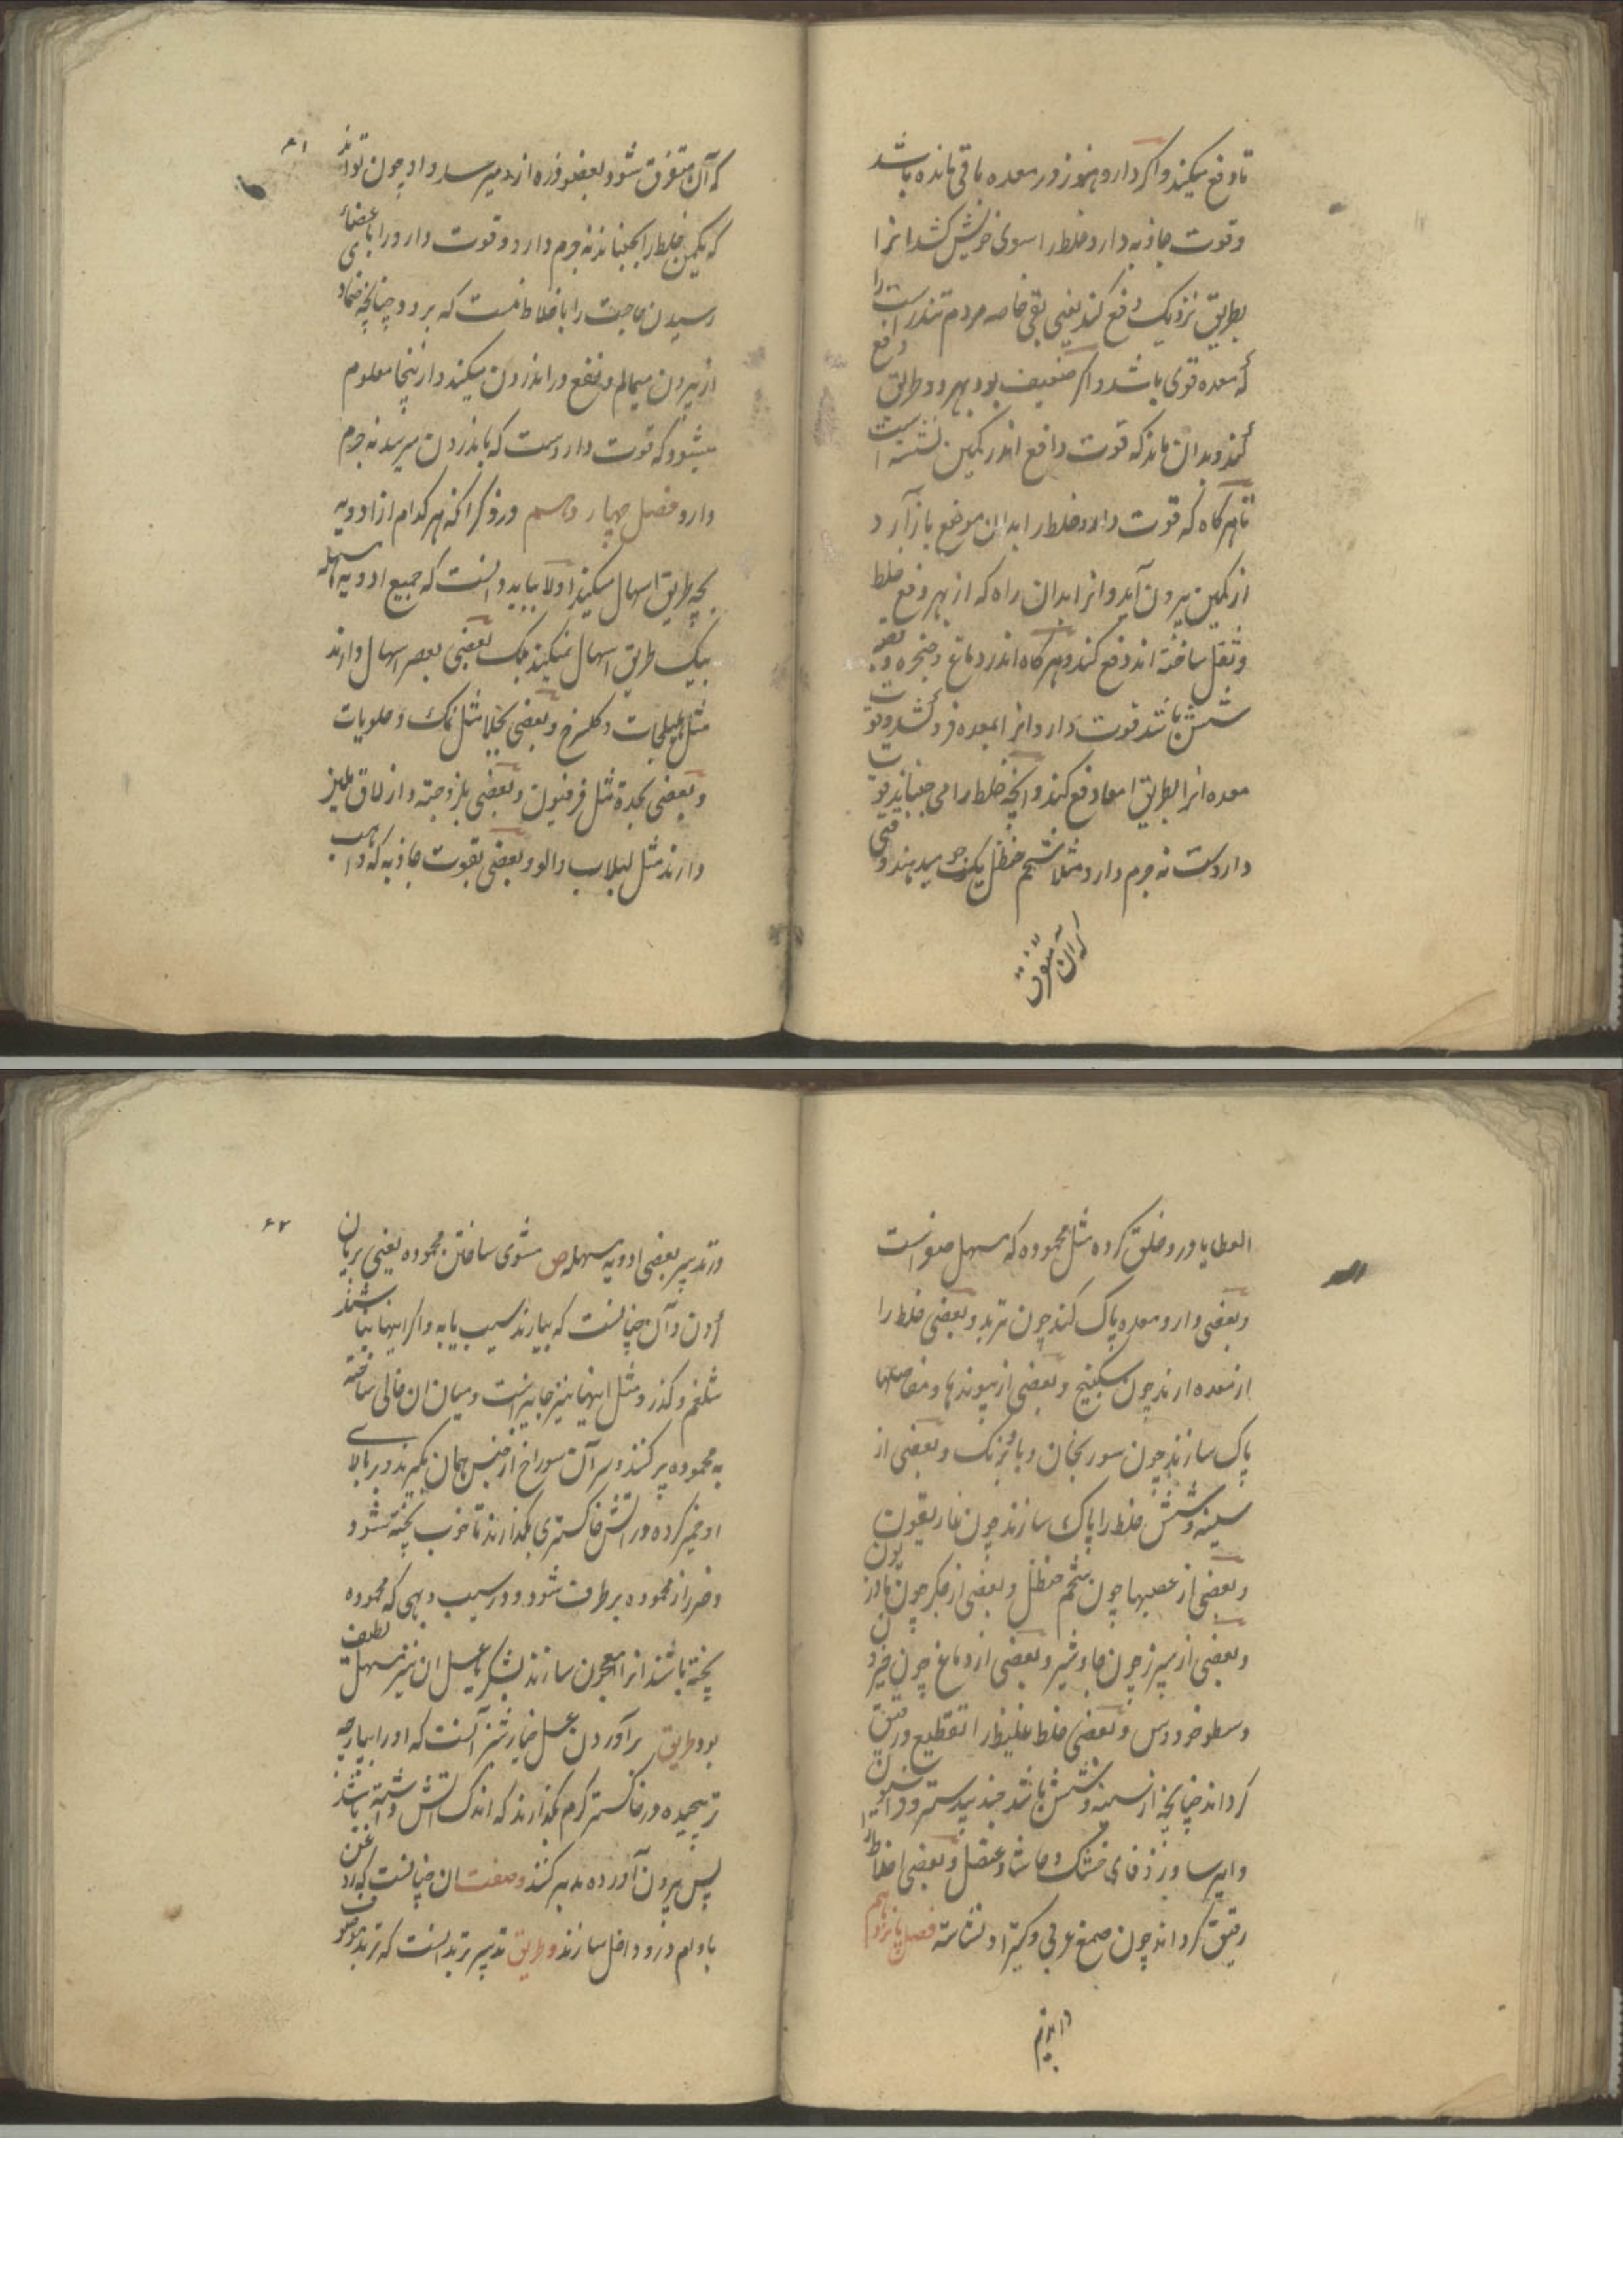 تا دفع میکیند و اکر دارو هنوز در معده باقی مانده باشد
و قوت جاذبه دارو خلط را سوی خویش کشد انرا
بطریق نزدیک دفع کند یعنی بقی خاصه مردم تندرست را
که معده قوی باشد و اکر ضعیف بود بهر دو طریق دفع
کند و بدان ماند که قوت دافع اندر کمین نشسته است
تا هر کاه که قوت دارو خلط را بدان موضع باز آرد
از کمین بیرون آید و انرا بدان راه که از بهر دفع خلط
و ثقل ساخته اند دفع کند و هر کاه اندر دماغ و حنجره و
شش باشد قوت دارو انرا بمعده فرو کشد و قوت
معده انرا بطریق امعا دفع کند و انچه خلط را می جنباند قوت
داروست نه جرم دارو مثلا شحم حنظل یکنخو میدهند وقتی
که آن متفرق
۶۱
که آن متفرق شود بعضو ذره از رسد و او چون تواند
که یکمن خلط را بجنباند نه جرم دارو و قوت دارو را باعضای
رسیدن حاجت را باخلاط نیست که برد و چنانچه ضماد
از بیرون میمالم و نفع در اندرون میکیند و از ینجا معلوم
میشود که قوت داروست که باندرون میرسد نه جرم
دارو فصل چهاردهم در ذکر انکه هر کدام از ادویه
بچه طریق اسهال میکیند اولا بباید دانست که جمیع ادویه مسهله
بیک طریق اسهال نمیکیند بلک بعضی بعصر اسهال دارند
مثل هلیلجات و کلسرخ و بعضی بجلا مثل نمک و حلویات
و بعضی بحدة مثل فرفیون و بعضی بلزوجته و ازلاق
دارند مثل لبلاب و الو و بعضی بقوت جاذبه که واهب
العطایا درو خلق کرده مثل محموده که مسهل صفراست
و بعضی دارو معده پاک کند چون تربد و بعضی خلط را
از معده ارند چون سکبینج و بعضی از پیوندها و مفاصلها
پاک سازند چون سورنجان و بوزیدان و بعضی از
سینه و شش خلط را پاک سازند چون غاریقون
و بعضی از عصبها چون شحم حنظل و بعضی از جکر چون
و بعضی از سپرز چون جاوشیر و بعضی از دماغ چون
و سطوخودوس و بعضی خلط غلیظ را تقطیع و رقیق
کرداند چنانچه از سینه و شش باشد جندبیدستر و
و ایرسا و زوفای خشک و حاشا و عنصل و بعضی اخلاط را
رقیق کرداند چون صمغ عربی و کتیرا و نشاسته فصل پانزدهم
در تدبیر
۶۲
در تدبیر بعضی ادویه مسهله ص مشوی ساختن محموده یعنی بریان
کردن و آن چنانست که بیارند سیب یا به و اکر اینها نباشند
شلغم و کذر و مثل اینها نیز جایز است و میان ان خالی ساخته
به محموده پر کنند و سر آن سوراخ از جنس همان بکیرند و بر بالای
او خمیر کرده در اتش خاکستری بکذارند تا خوب پخته شود
و ضرر از محموده برطرف شود و در سیب و بهی که محموده
پخته باشند انرا معجون سازند بشکر یا عسل ان نیز مسهل لطیف
بود و طریق بر آوردن عسل خیارشنبر آنست که او را بپارچه
تر پیچیده در خاکستر کرم بکذارند که اندک اتش داشته باشد
پس بیرون آورده بدر کنند و صفت ان چنانست که روغن
بادام درو داخل سازند و طریق تدبیر تربد انست که تربد